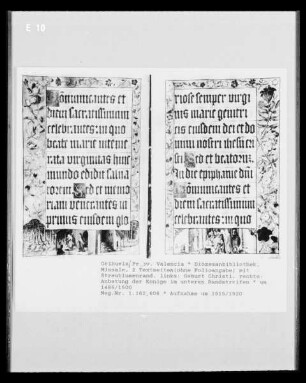 E 10
Cōmunicantes et
diem sacratissimum
celebrantes: in quo
beate marie inteme
rata virginitas huic
mundo edidit salua
torem. Sed et memo
riam venerantes in
primis eiusdem glo
riose semper virgi
nis marie genitri
cis eiusdem dei et do
mini nostri ihesu xpi
Sed et beatorū.
In die epiphanie dni
Cōmunicantes et
diem sacratissimum
celebrantes: in quo
Valencia * Diözesanbibliothek.
Missale. 2 Textseiten(ohne Folioangabe) mit
Streublumenrand. links: Geburt Christi. rechts:
Anbetung der Könige im unteren Randstreifen * um
1480/1500
Neg.Nr. 1.162.608 * Aufnahme um 1915/1920